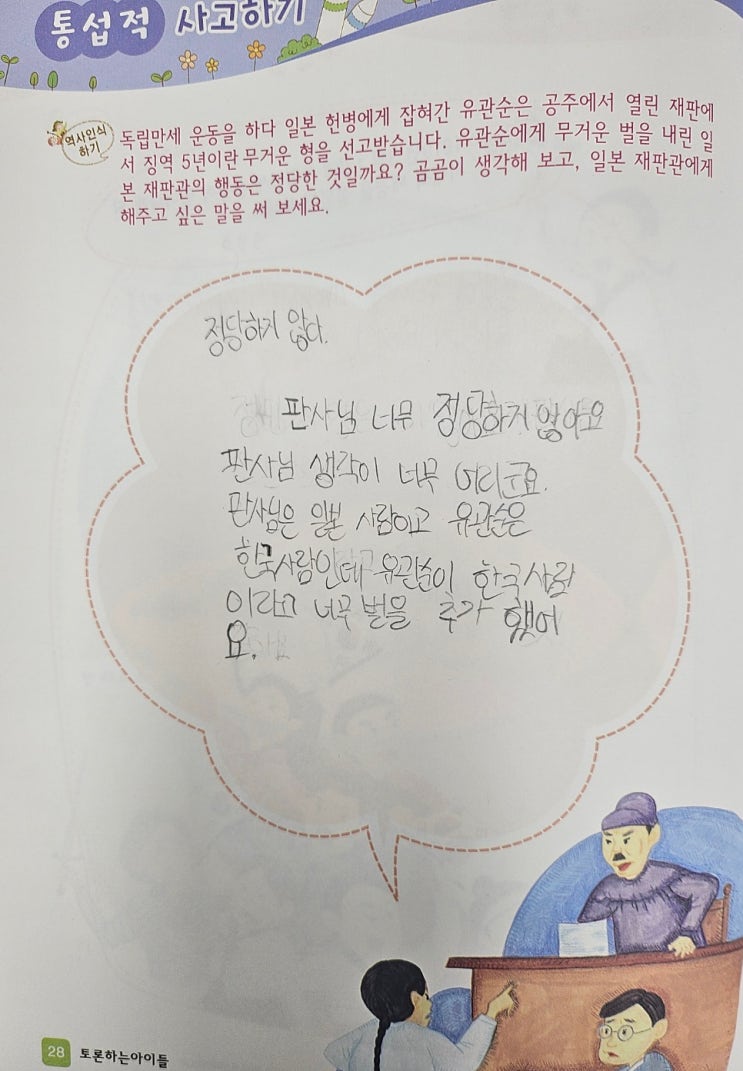 통섭적 사고하기
역사인식
하기
독립만세 운동을 하다 일본 헌병에게 잡혀간 유관순은 공주에서 열린 재판에
서 징역 5년이란 무거운 형을 선고받습니다. 유관순에게 무거운 벌을 내린 일
본 재판관의 행동은 정당한 것일까요? 곰곰이 생각해 보고, 일본 재판관에게
해주고 싶은 말을 써 보세요.
정당하지 않다.
판사님 너무 정당하지 않아요
판사님 생각이 너무 어리군요.
판사님은 일본 사람이고 유관순은
한국사람인데 유관순이 한국사람
이라고 너무 벌을 추가 했어
요.
28 토론하는아이들